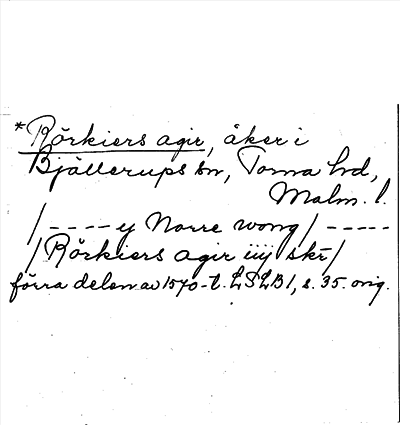 *Rörkiers agir, åker i
Bjällerups sn, Torna hd,
Malm. l.
/- - - - y Norre wong/ - - - - -
/Rörkiers agir iiij skr/
förra delen av 1570-t. LSLB1, s. 35. orig.